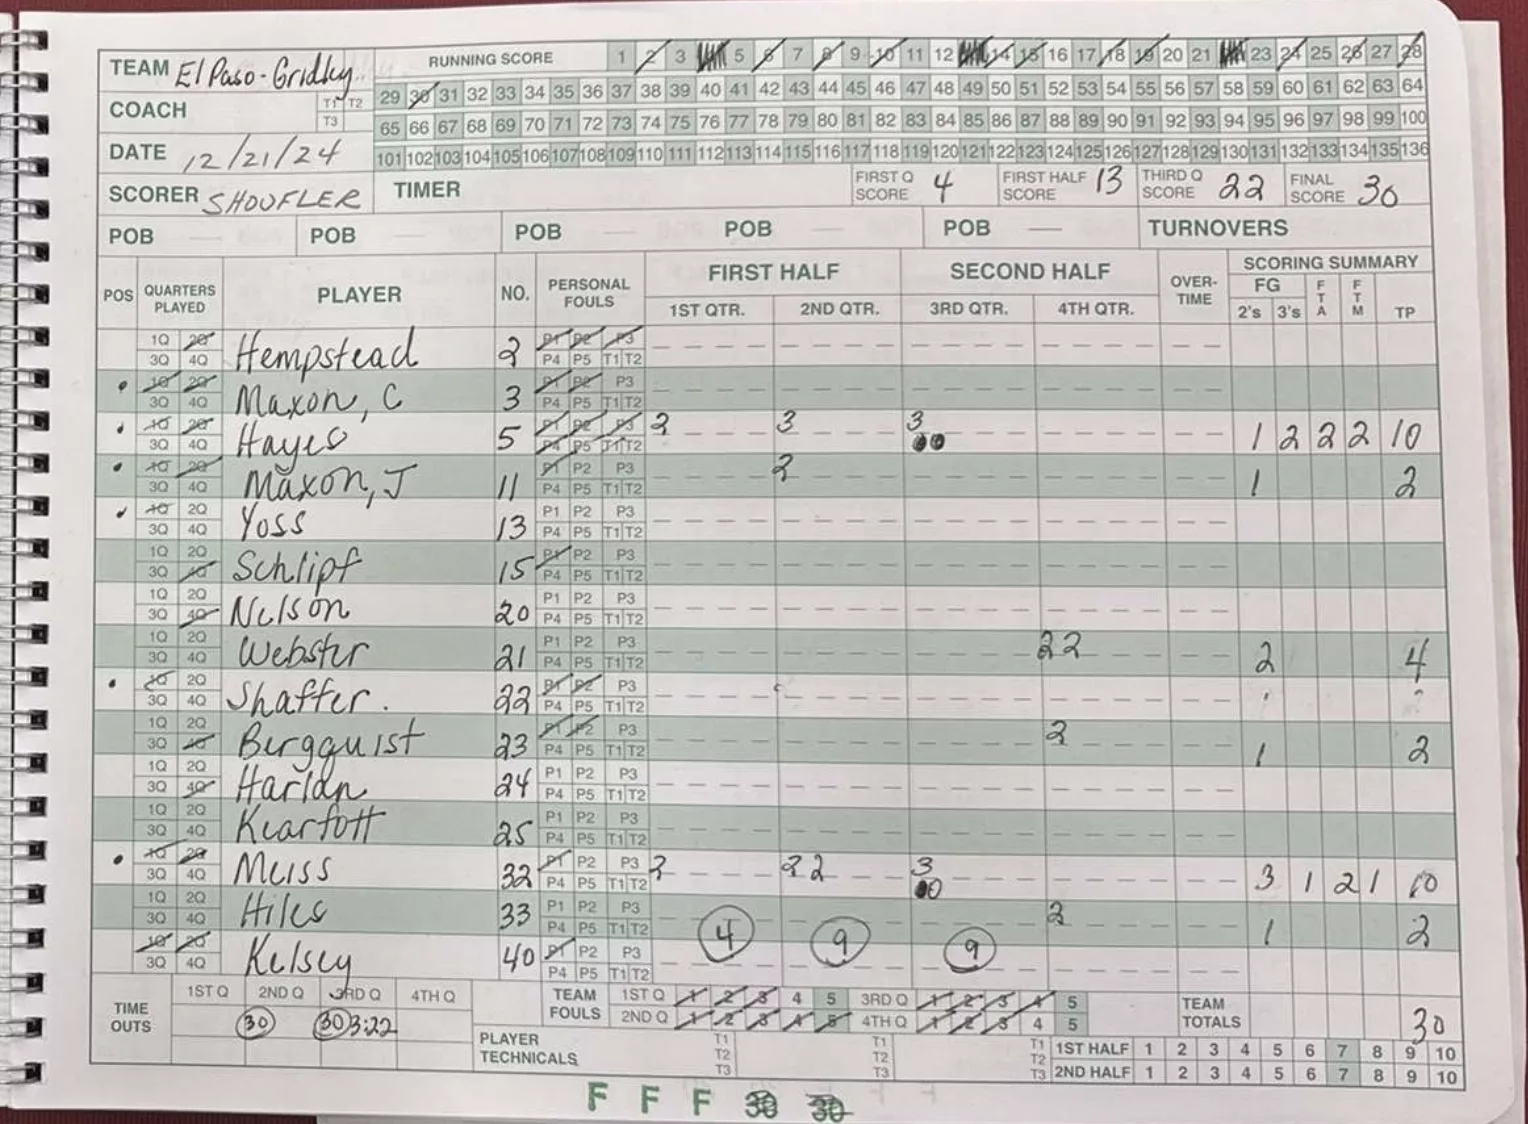 TEAM El Paso-Gridley RUNNING SCORE 1 2 3 5 6 7 8 9 10 11 12 14 15 16 17 18 19 20 21 23 24 25 26 27 28
COACH T1 T2 T3 29 30 31 32 33 34 35 36 37 38 39 40 41 42 43 44 45 46 47 48 49 50 51 52 53 54 55 56 57 58 59 60 61 62 63 64
65 66 67 68 69 70 71 72 73 74 75 76 77 78 79 80 81 82 83 84 85 86 87 88 89 90 91 92 93 94 95 96 97 98 99 100
DATE 12/21/24 101 102 103 104 105 106 107 108 109 110 111 112 113 114 115 116 117 118 119 120 121 122 123 124 125 126 127 128 129 130 131 132 133 134 135 136
SCORER SHOUFLER TIMER FIRST Q SCORE 4 FIRST HALF SCORE 13 THIRD Q SCORE 22 FINAL SCORE 30
POB POB POB POB POB TURNOVERS
POS QUARTERS PLAYED PLAYER NO. PERSONAL FOULS FIRST HALF SECOND HALF OVER-TIME SCORING SUMMARY
1ST QTR. 2ND QTR. 3RD QTR. 4TH QTR. FG 2's 3's FTA FTM TP
1Q 2Q 3Q 4Q Hempstead 2 P1 P2 P3 P4 P5 T1 T2
1Q 2Q 3Q 4Q Maxon, C 3 P1 P2 P3 P4 P5 T1 T2
1Q 2Q 3Q 4Q Hayes 5 P1 P2 P3 P4 P5 T1 T2 2 3 3 1 2 2 2 10
1Q 2Q 3Q 4Q Maxon, J 11 P1 P2 P3 P4 P5 T1 T2 2 1 2
1Q 2Q 3Q 4Q Yoss 13 P1 P2 P3 P4 P5 T1 T2
1Q 2Q 3Q 4Q Schlipf 15 P1 P2 P3 P4 P5 T1 T2
1Q 2Q 3Q 4Q Nelson 20 P1 P2 P3 P4 P5 T1 T2
1Q 2Q 3Q 4Q Webster 21 P1 P2 P3 P4 P5 T1 T2 2 2 2 4
1Q 2Q 3Q 4Q Shaffer. 22 P1 P2 P3 P4 P5 T1 T2
1Q 2Q 3Q 4Q Bergquist 23 P1 P2 P3 P4 P5 T1 T2 2 1 2
1Q 2Q 3Q 4Q Harlan 24 P1 P2 P3 P4 P5 T1 T2
1Q 2Q 3Q 4Q Kearfott 25 P1 P2 P3 P4 P5 T1 T2
1Q 2Q 3Q 4Q Meiss 32 P1 P2 P3 P4 P5 T1 T2 2 2 2 3 3 1 2 1 10
1Q 2Q 3Q 4Q Hiles 33 P1 P2 P3 P4 P5 T1 T2 2 1 2
1Q 2Q 3Q 4Q Kelsey 40 P1 P2 P3 P4 P5 T1 T2 4 9 9
TIME OUTS 1ST Q 2ND Q 3RD Q 4TH Q TEAM FOULS 1ST Q 1 2 3 4 5 3RD Q 1 2 3 4 5 TEAM TOTALS 30
30 30 3:22 2ND Q 1 2 3 4 5 4TH Q 1 2 3 4 5
PLAYER TECHNICALS T1 T2 T3 T1 T2 T3 T1 T2 T3 1ST HALF 1 2 3 4 5 6 7 8 9 10
2ND HALF 1 2 3 4 5 6 7 8 9 10
F F F 30 30